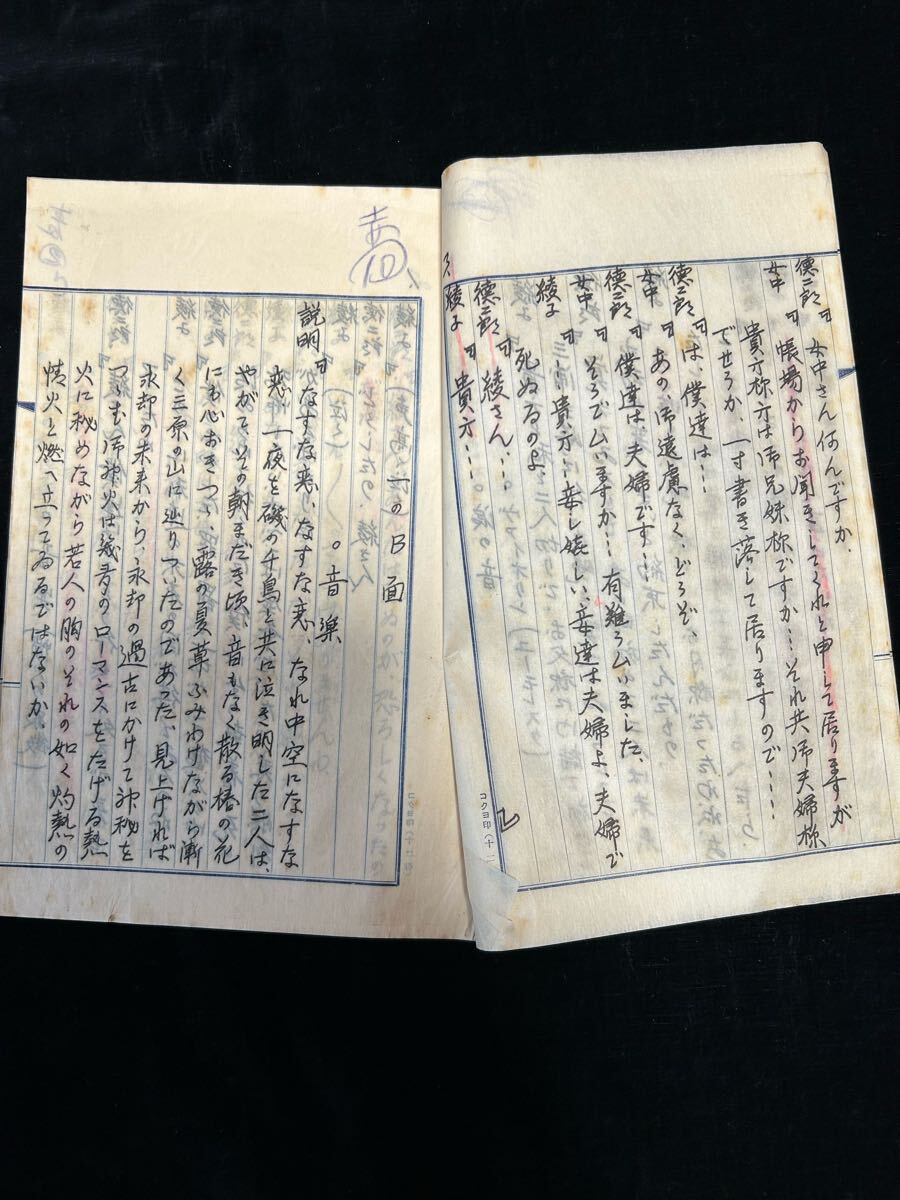 徳二郎「女中さん何んですか、
女中「帳場からお聞きしてくれと申して居りますが
貴方様方は御兄妹様ですか…それ共御夫婦様
でせうか、一寸書き落して居りますので……
徳二郎「は、僕達は…
女中「あの御遠慮なく、どうぞ、
徳二郎「僕達は、夫婦です…
女中「そうでムいますか…有難うムいました、
綾子「…貴方…妾し嬉しい、妾達は夫婦よ、夫婦で
死ぬるのよ
徳二郎「綾さん…
綾子「貴方…
コクヨ印
一のB面
。音楽
説明「がなすな恋、がなすな恋 なれ中空になすな
恋 一夜を磯の千鳥と共に泣き明した二人は、
やがて、その朝まだき頃、音もなく散る椿の花
にも心おきつゝ、露の夏草ふみわけながら漸
く三原の山に辿りついたのであった、見上げれば
永却の未来から、永却の過古にかけて神秘を
つゝむ御神火は幾多のローマンスをたげる熱
火に秘めながら若人の胸のそれの如く灼熱の
情火と燃へ立つてゐるではないか、
コクヨ印